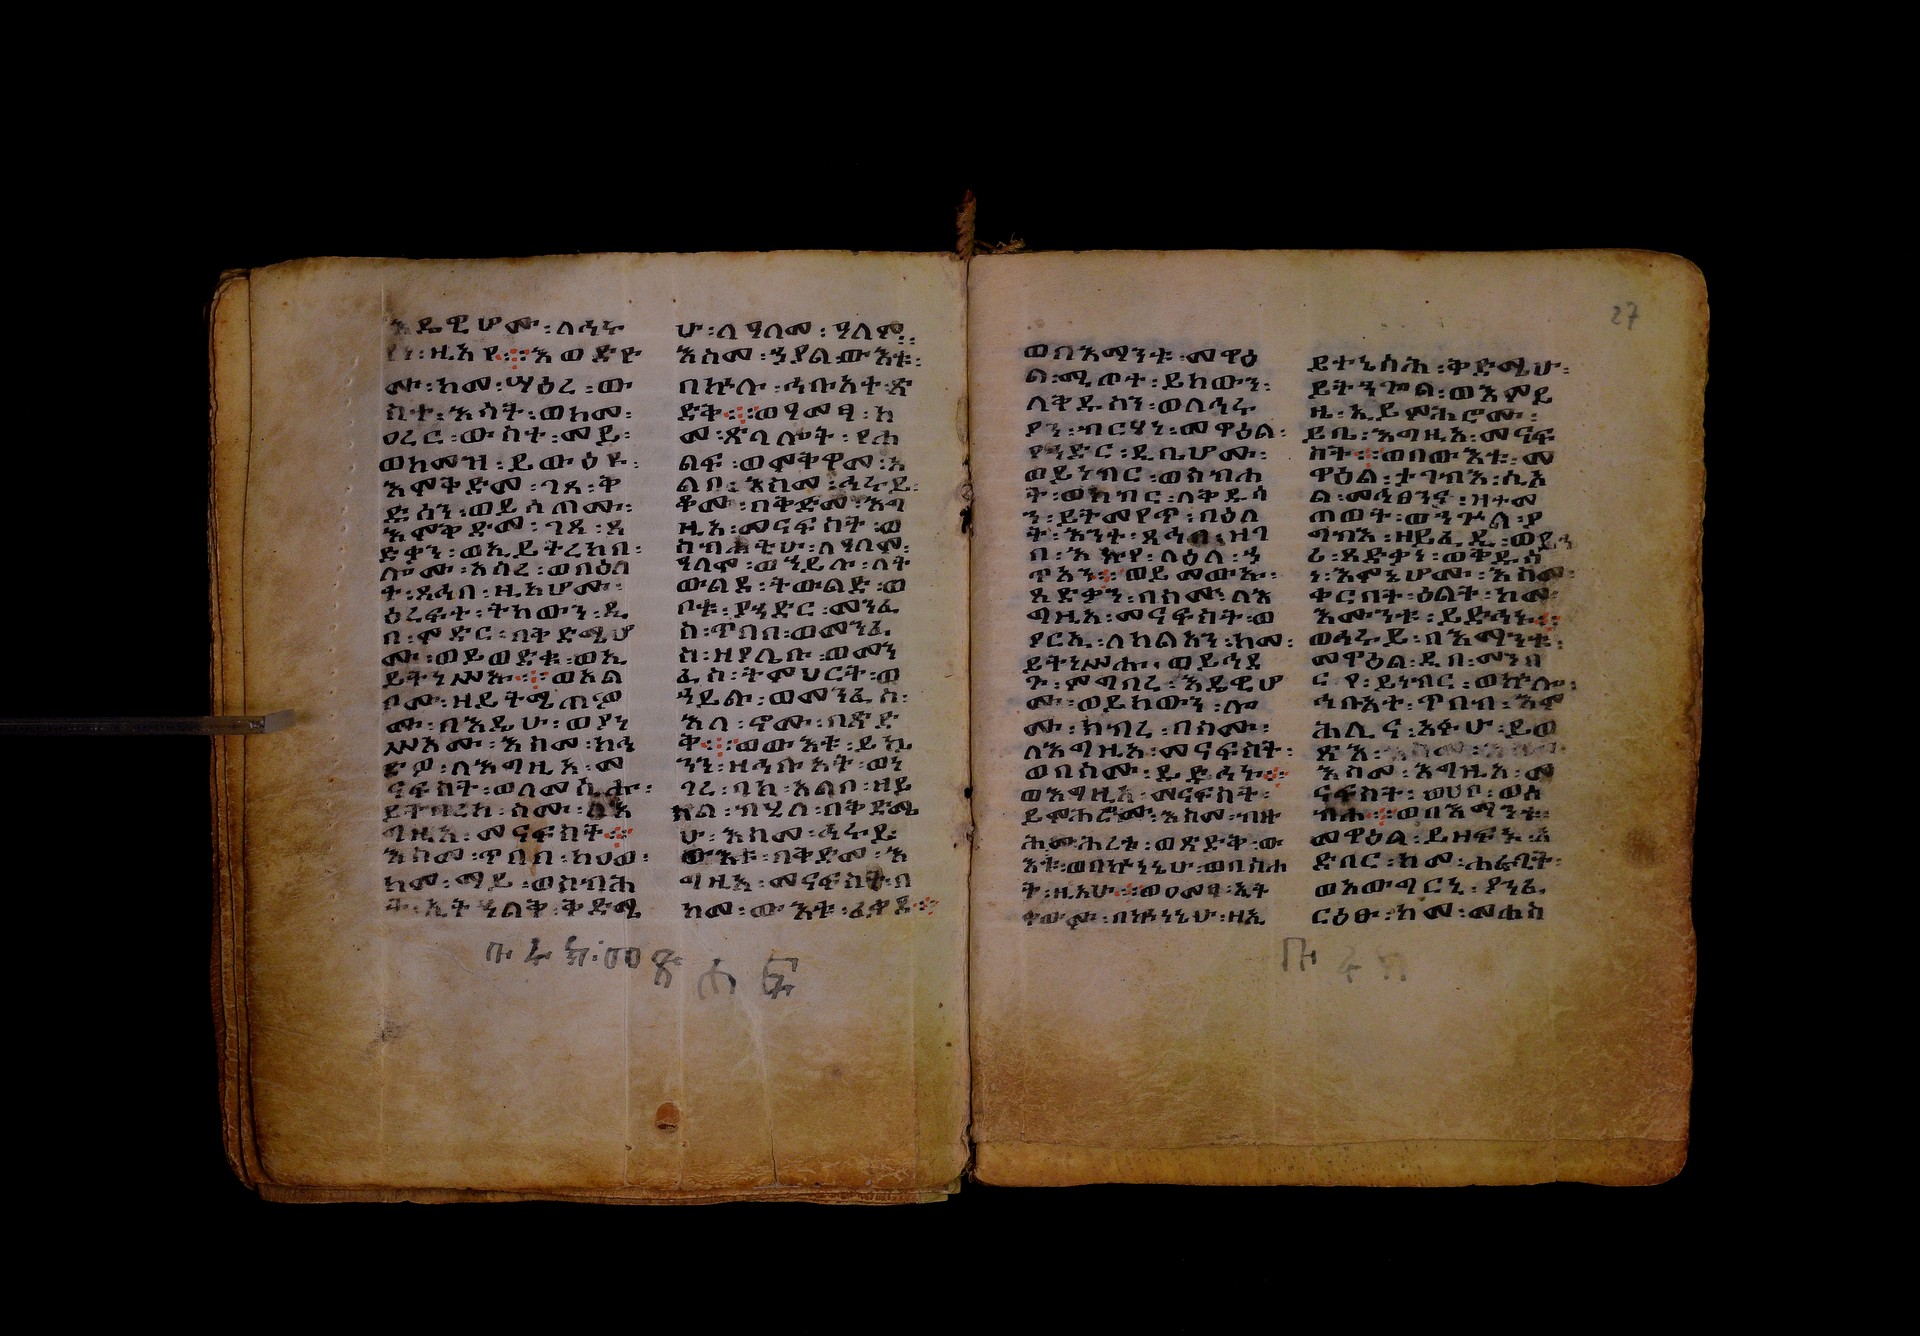 እዴዊሆሙ፡ለኅሩ
ያነ፡ዚአየ፨እወድዮ
ሙ፡ከመ፡ሣዕረ፡ው
ስተ፡እሳት፡ወከመ፡
ዐረር፡ውስተ፡መይ፡
ወከመዝ፡ይውዕዩ፡
እምቅድመ፡ገጸ፡ቅ
ዱሳን፡ወይሰጠሙ፡
እምቅድመ፡ገጸ፡ጻ
ድቃን፡ወኢይትረከብ፡
ሎሙ፡አሰረ፡ወበዕለ
ተ፡ጻሕበ፡ዚአሆሙ፡
ዕረፍተ፡ትከውን፡ዲ
በ፡ምድር፡በቅድሜሆ
ሙ፡ወይወድቁ፡ወኢ
ይትነሥኡ፨ወአል
ቦሙ፡ዘይትሜጠዎ
ሙ፡በእዴሁ፡ወያነ
ሥኦሙ፡እስመ፡ክሕ
ድዎ፡ለእግዚአ፡መ
ናፍስት፡ወለመሲሑ፡
ይትባረክ፡ስሙ፡ለእ
ግዚአ፡መናፍስት፨
እስመ፡ጥበብ፡ከዐወ፡
ከመ፡ማይ፡ወስብሐ
ት፡ኢትኃልቅ፡ቅድሜ
ሁ፡ለዓለመ፡ዓለም፡
እስመ፡ኃያል፡ውእቱ፡
በኵሉ፡ኅቡአተ፡ጽ
ድቅ፨ወዓመፃ፡ከ
መ፡ጽላሎት፡የሐ
ልፍ፡ወምቅዋመ፡አ
ልቦ፡እስመ፡ኅሩይ፡
ቆመ፡በቅድመ፡እግ
ዚአ፡መናፍስት፡ወ
ስብሐቲሁ፡ለዓለመ፡
ዓለም፡ወኃይሉ፡ለት
ውልደ፡ትውልድ፡ወ
ቦቱ፡የኃድር፡መንፈ
ሰ፡ጥበብ፡ወመንፈ
ሰ፡ዘያሌቡ፡ወመን
ፈሰ፡ትምህርት፡ወ
ኃይል፡ወመንፈሰ፡
እለ፡ኖሙ፡በጽድ
ቅ፨ወውእቱ፡ይኴ
ንን፡ዘኅቡአት፡ወነ
ገረ፡በከ፡አልቦ፡ዘይ
ክል፡ብሂለ፡በቅድሜ
ሁ፡እስመ፡ኅሩይ፡
ውእቱ፡በቅድመ፡እ
ግዚአ፡መናፍስት፡በ
ከመ፡ውእቱ፡ፈቀደ፨
27
ወበእማንቱ፡መዋዕ
ል፡ሚጠት፡ይከውን፡
ለቅዱሳን፡ወለኅሩ
ያን፡ብርሃነ፡መዋዕል፡
የኃድር፡ዲቤሆሙ፡
ወይነብር፡ወስብሐ
ት፡ወክብር፡ለቅዱሳ
ን፡ይትመየጥ፡በዕለ
ት፡እንተ፡ጻሕብ፡ዝገ
በ፡እኩየ፡ለዕለ፡ኃ
ጥአን፨ወይመውኡ፡
ጻድቃን፡በስመ፡ለእ
ግዚአ፡መናፍስት፡ወ
ያርኢ፡ለካልኣን፡ከመ፡
ይትነሥሑ፡ወይኅደ
ጉ፡ምግባረ፡እዴዊሆ
ሙ፡ወይከውን፡ሎ
ሙ፡ክብረ፡በስሙ፡
ለእግዚአ፡መናፍስት፡
ወበስሙ፡ይድኅኑ፨
ወእግዚአ፡መናፍስት፡
ይምሕሮሙ፡እስመ፡ብዙ
ሕ፡ምሕረቱ፡ወጻድቅ፡ው
እቱ፡ወበኵነኔሁ፡ወበስብሐ
ት፡ዚአሁ፨ወዐመፃ፡ኢት
ቀውም፡በኵነኔሁ፡ዘኢ
ይትኔሳሕ፡ቅድሜሁ፡
ይትኃጐል፡ወእምይ
ዜ፡ኢይምሕሮሙ፡
ይቤ፡እግዚአ፡መናፍ
ስት፨ወበውእቱ፡መ
ዋዕል፡ታገብእ፡ሲኦ
ል፡መሐፀንታ፡ዘተመ
ጠወት፡ወኃጕል፡ያ
ገብእ፡ዘይፈዲ፡ወይኀ
ሪ፡ጻድቃነ፡ወቅዱሳ
ነ፡እምኔሆሙ፡እስመ፡
ቀርበት፡ዕለት፡ከመ፡
እሙንቱ፡ይድኅኑ፨
ወኅሩይ፡በእማንቱ፡
መዋዕል፡ዲበ፡መንበ
ርየ፡ይነብር፡ወኵሎ፡
ኅቡአተ፡ጥበብ፡እም
ሕሊና፡አፉሁ፡ይወ
ጽእ፡
እስመ፡እግዚአ፡መ
ናፍስት፡ወሀቦ፡ወሰ
ብሖ፨ወበእማንቱ፡
መዋዕል፡ይዘፍኑ፡አ
ድባር፡ከመ፡ሐራጊት፡
ወአውግርኒ፡ያንፈ
ርዕፁ፡ከመ፡መሐስ